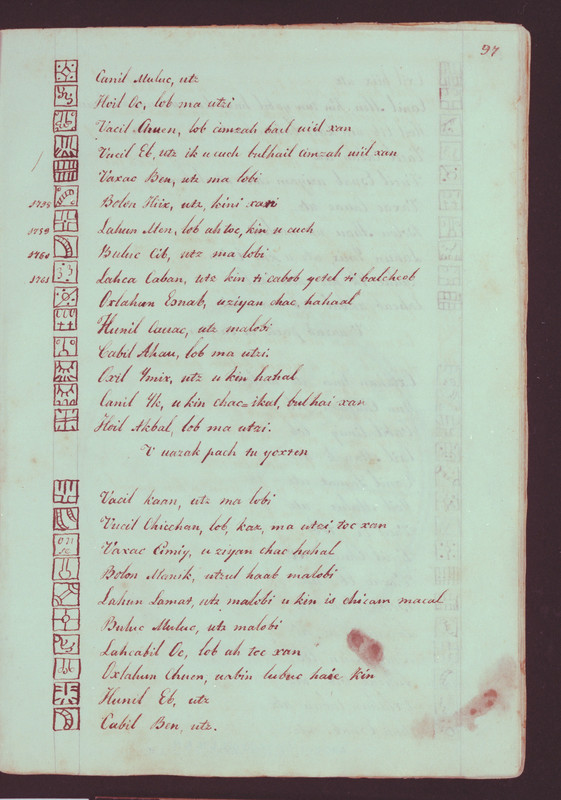 97
Canil Muluc, utz
Hoil Oc, lob ma utzi
Vacil Chuen, lob cimzah bail uiil xan
Vucil Eb, utz ik u cuch bulhail cimzah uiil xan
Vaxac Ben, utz ma lobi
1758 Bolon Hiix, utz, kini xan
1759 Lahun Men, lob ah toc, kin u cuch
1760 Buluc Cib, utz ma lobi
1761 Lahca Caban, utz kin ti cabob yetel ti balcheob
Oxlahun Esnab, uziyan chac, hahaal
Hunil Cauac, utz malobi
Cabil Ahau, lob ma utzi.
Oxil Ymix, utz u kin hahal
Canil Yk, u kin chac=ikal, bulhai xan
Hoil Akbal, lob ma utzi.
V uazak pach tu yoxten
Vacil kaan, utz ma lobi
Vucil Chicchan, lob, kaz, ma utzi, toc xan
Vaxac Cimiy, u ziyan chac hahal
Bolon Manik, utzul haab malobi
Lahun Lamat, utz malobi u kin is chicam macal
Buluc Muluc, utz malobi
Lahcabil Oc, lob ah toc xan
Oxlahun Chuen, uabin lubuc haie kin
Hunil Eb, utz
Cabil Ben, utz.